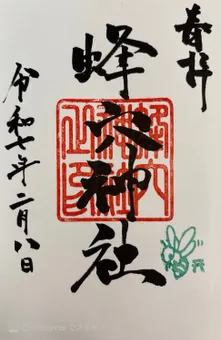 奉拝
蜂穴神社
令和七年二月八日